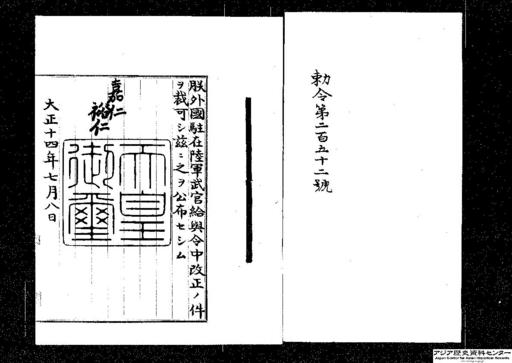 勅令第二百五十二號
朕外國駐在陸軍武官給與令中改正ノ件
ヲ裁可シ茲ニ之ヲ公布セシム
嘉仁
裕仁
天皇御璽
大正十四年七月八日
アジア歴史資料センター
Japan Center for Asian Historical Records